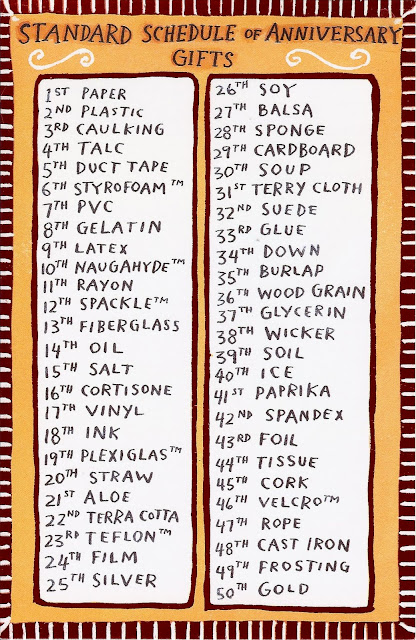 STANDARD SCHEDULE OF ANNIVERSARY
GIFTS
1ST PAPER
2ND PLASTIC
3RD CAULKING
4TH TALC
5TH DUCT TAPE
6TH STYROFOAM™
7TH PVC
8TH GELATIN
9TH LATEX
10TH NAUGAHYDE™
11TH RAYON
12TH SPACKLE™
13TH FIBERGLASS
14TH OIL
15TH SALT
16TH CORTISONE
17TH VINYL
18TH INK
19TH PLEXIGLAS™
20TH STRAW
21ST ALOE
22ND TERRA COTTA
23RD TEFLON™
24TH FILM
25TH SILVER
26TH SOY
27TH BALSA
28TH SPONGE
29TH CARDBOARD
30TH SOUP
31ST TERRY CLOTH
32ND SUEDE
33RD GLUE
34TH DOWN
35TH BURLAP
36TH WOOD GRAIN
37TH GLYCERIN
38TH WICKER
39TH SOIL
40TH ICE
41ST PAPRIKA
42ND SPANDEX
43RD FOIL
44TH TISSUE
45TH CORK
46TH VELCRO™
47TH ROPE
48TH CAST IRON
49TH FROSTING
50TH GOLD